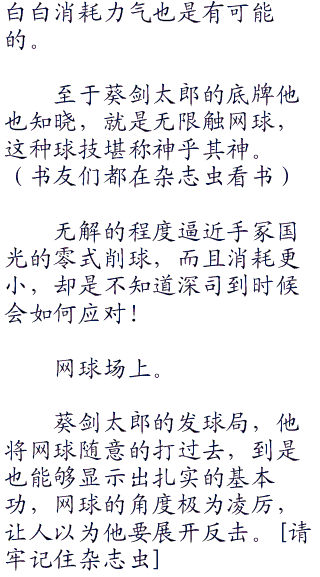 白白消耗力气也是有可能
的。
至于葵剑太郎的底牌他
也知晓，就是无限触网球，
这种球技堪称神乎其神。
（书友们都在杂志虫看书）
无解的程度逼近手冢国
光的零式削球，而且消耗更
小，却是不知道深司到时候
会如何应对！
网球场上。
葵剑太郎的发球局，他
将网球随意的打过去，到是
也能够显示出扎实的基本
功，网球的角度极为凌厉，
让人以为他要展开反击。[请
牢记住杂志虫]